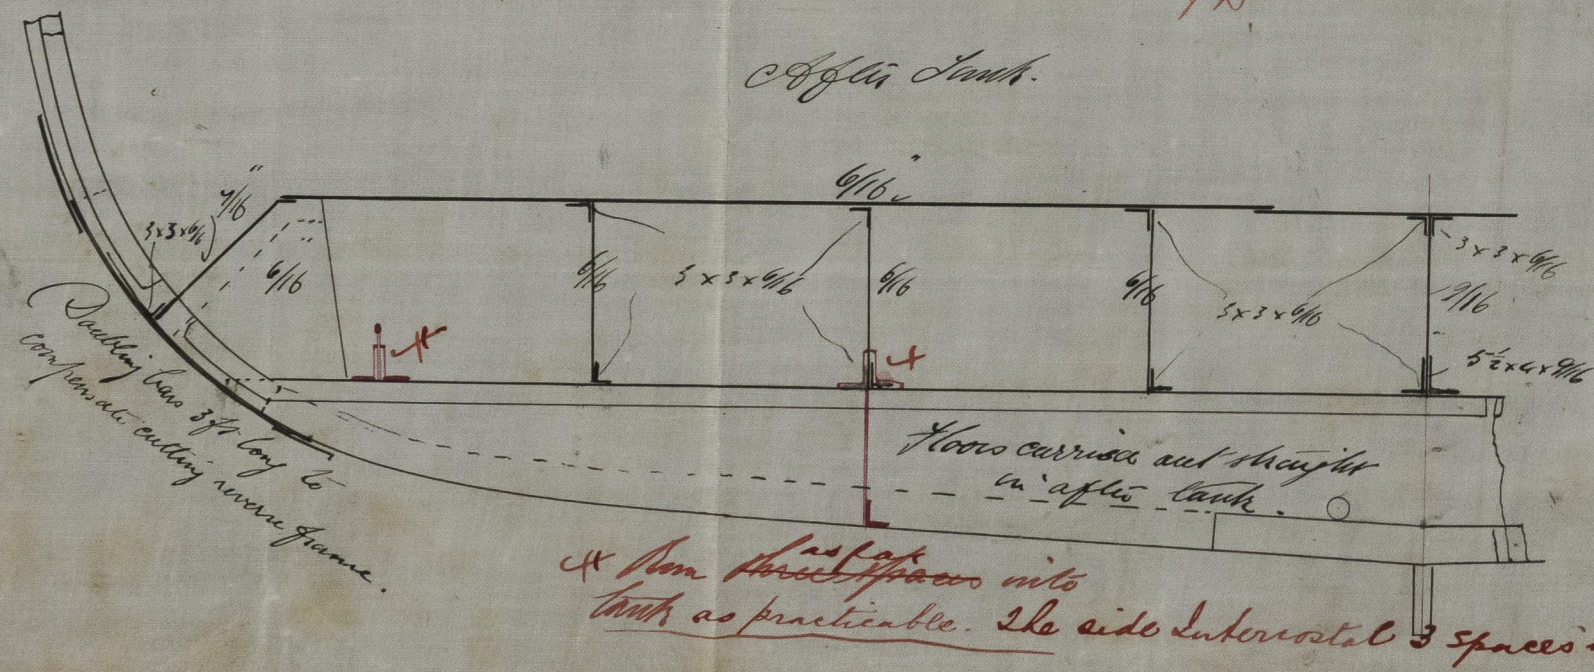 After Tank.
6/16"
7/16"
3x3x6/16
6/16
6/16
3 x 3 x 6/16
6/16
6/16
3x3x6/16
3 x 3 x 6/16
9/16
5½ x 4 x 9/16
Doubling bars 3 ft long to
compensate cutting reverse frame.
Floors carried out straight
in after tank.
as far
Run three spaces into
tank as practicable. The side Intercostal 3 spaces.